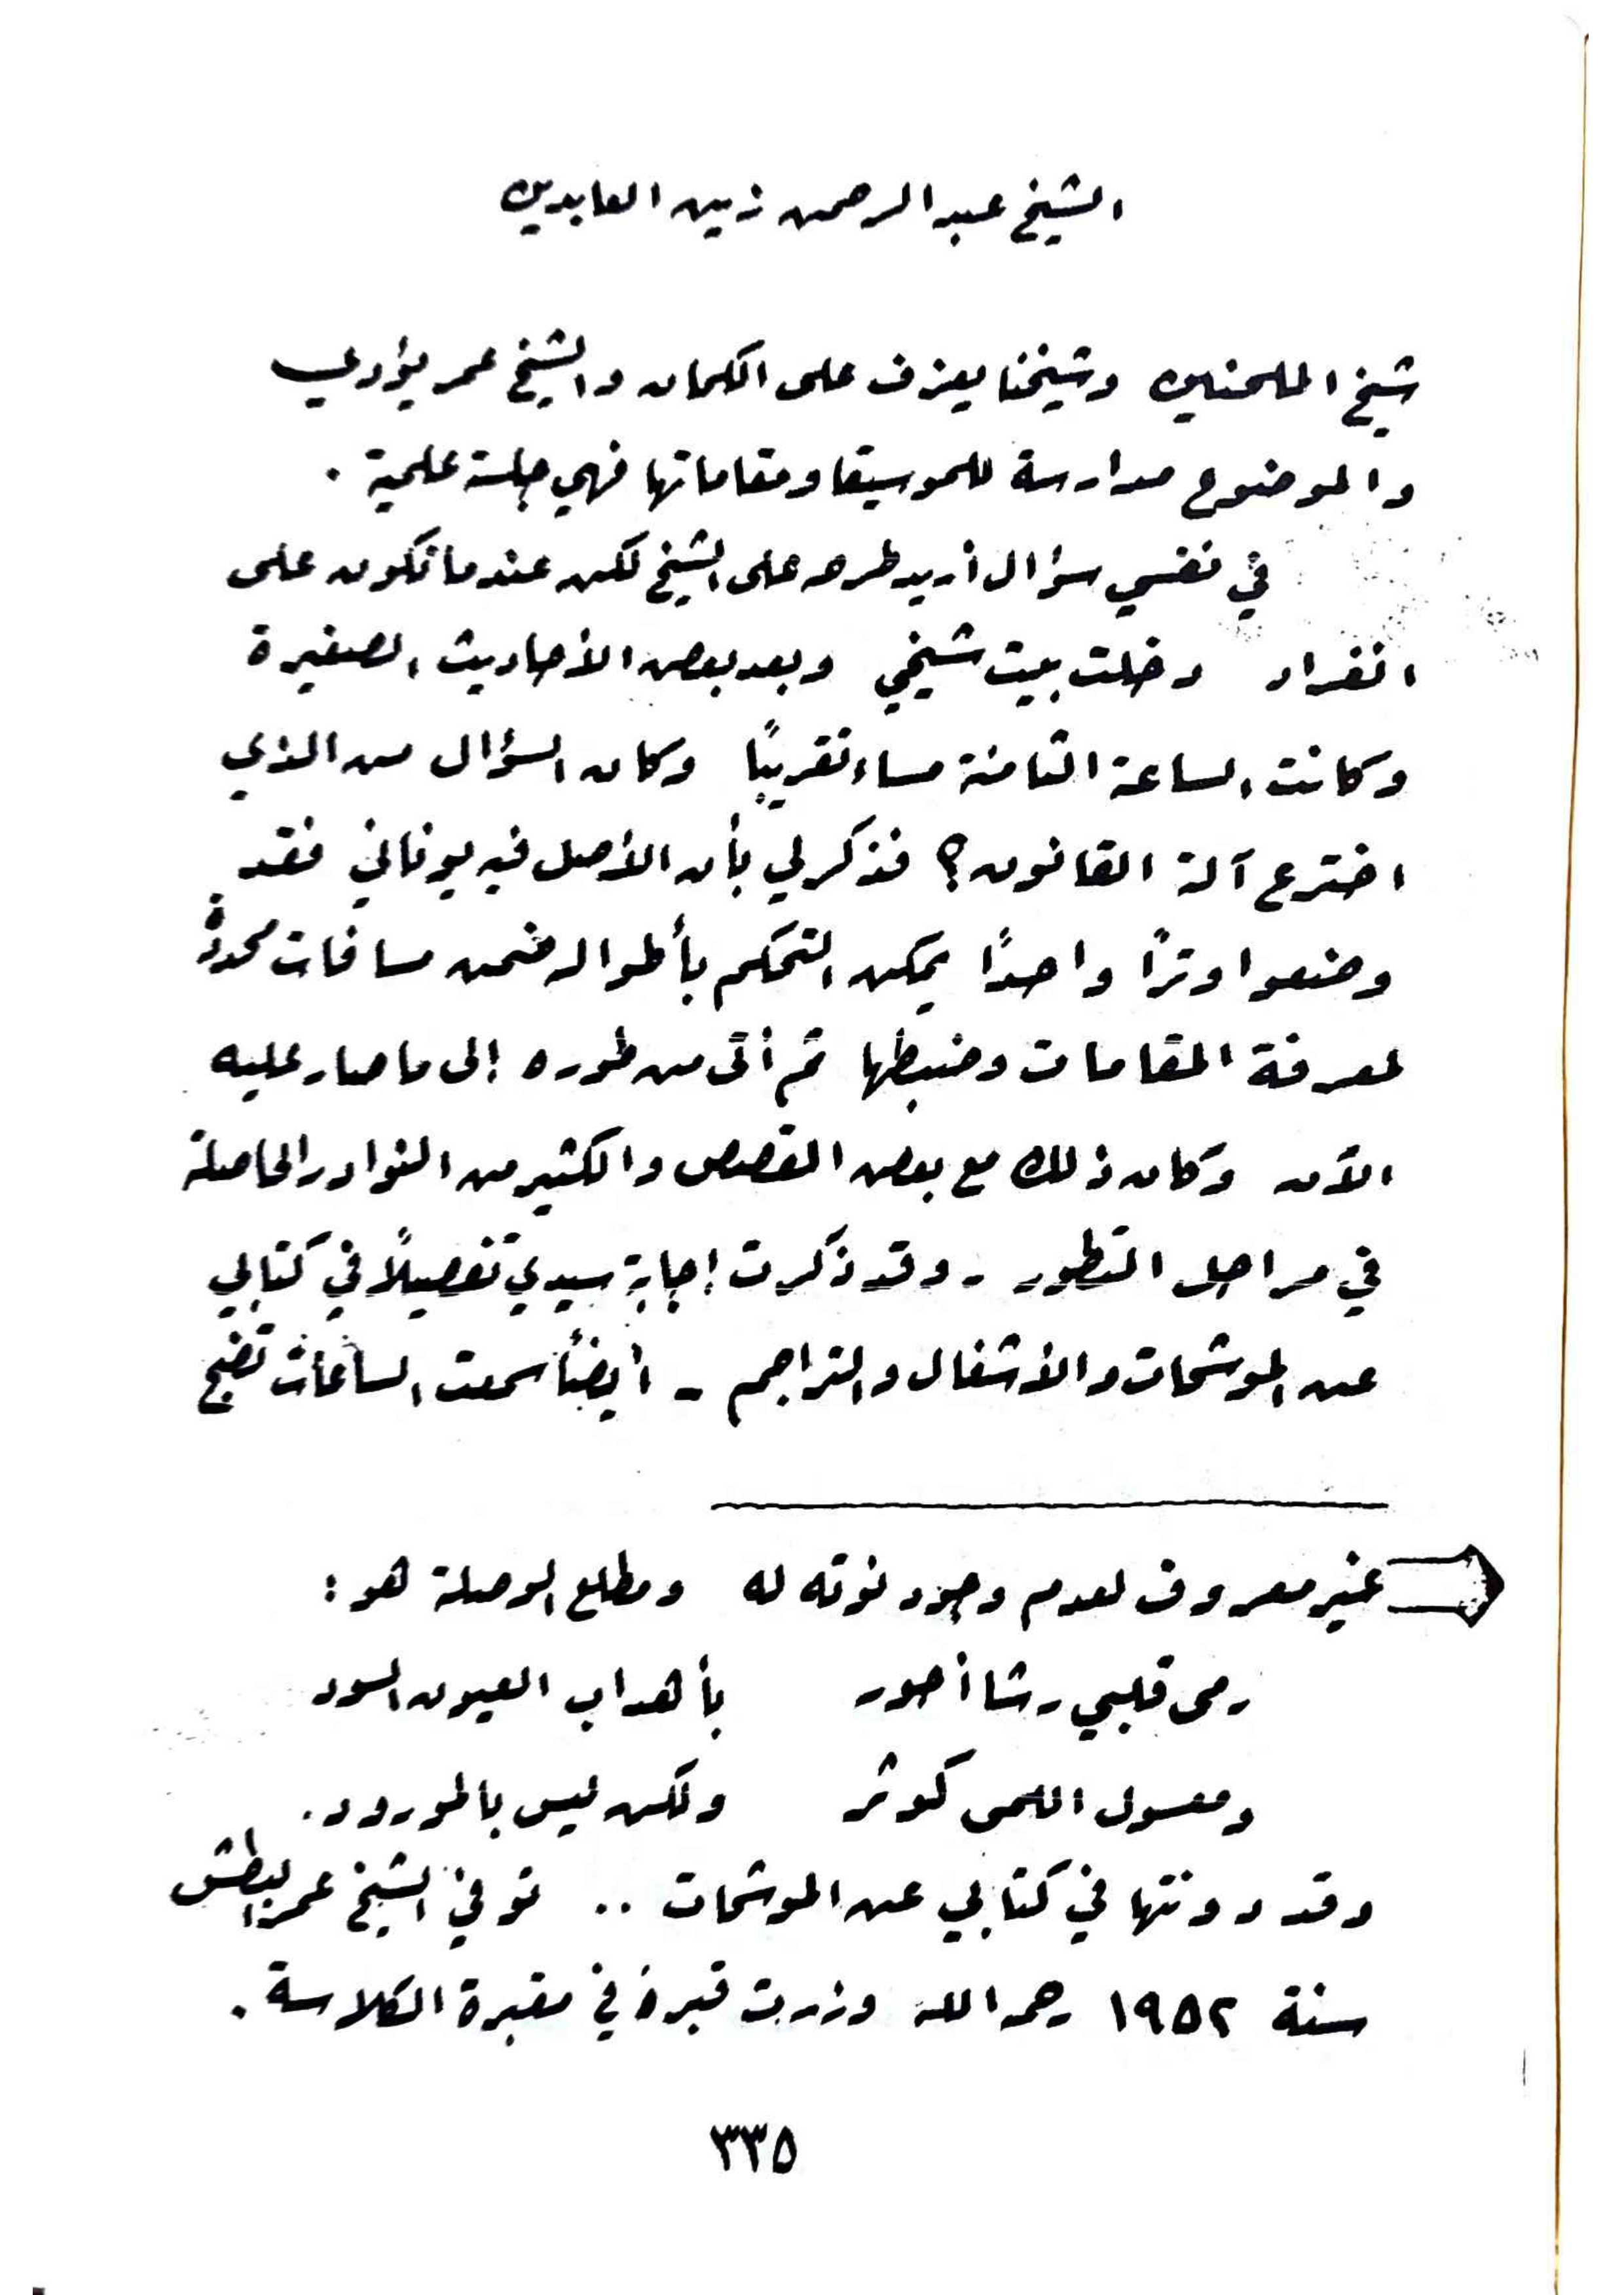 الشيخ عبد الرحمن زين العابدين
شيخ الملحنين وشيخنا يعزف على الكمان والشيخ عمر يؤدي
والموضوع مدارسة للموسيقا ومقاماتها فهي جلسة علمية .
في نفسي سؤال أريد طرحه على الشيخ لكن عندما نكون على
انفراد دخلت بيت شيخي وبعد بعض الأحاديث الصغيرة
وكانت الساعة الثامنة مساء تقريبًا وكان السؤال من الذي
اخترع آلة القانون؟ فذكر لي بأن الأصل فيه يوناني فقد
وضعوا وترًا واحدًا يمكن التحكم بأطواله ضمن مسافات محددة
لمعرفة المقامات وضبطها ثم أتى من طوره إلى ما صار عليه
الآن وكان ذلك مع بعض القصص والكثير من النوادر الحاصلة
في مراحل التطور - وقد ذكرت إجابة سيدي تفصيلًا في كتابي
عن الموشحات والأشغال والتراجم - أيضًا سمعت الساعات تضج
غير معروف لعدم وجود نوته له ومطلع الوصلة هو :
رمى قلبي رشا أحور بأهداب العيون السود
ومعسول اللمى كوثر ولكن ليس بالمورود.
وقد دونتها في كتابي عن الموشحات .. توفي الشيخ عمر البطش
سنة ١٩٥٢ رحمه الله وزرت قبره في مقبرة الكلاسة .
٣٣٥